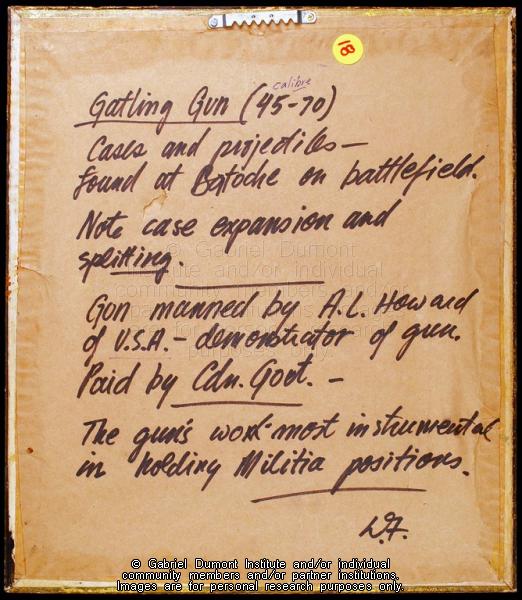 18
calibre
Gatling Gun (45-70)
Cases and projectiles —
found at Batoche on battlefield.
Note case expansion and
splitting.
Gun manned by A.L. Howard
of U.S.A. — demonstrator of gun.
Paid by Cdn. Govt. —
The gun's work most instrumental
in holding Militia positions.
© Gabriel Dumont
Institute and/or individual
community members and/or
for personal research
purposes only.
© Gabriel Dumont Institute and/or individual
community members and/or partner institutions.
Images are for personal research purposes only.